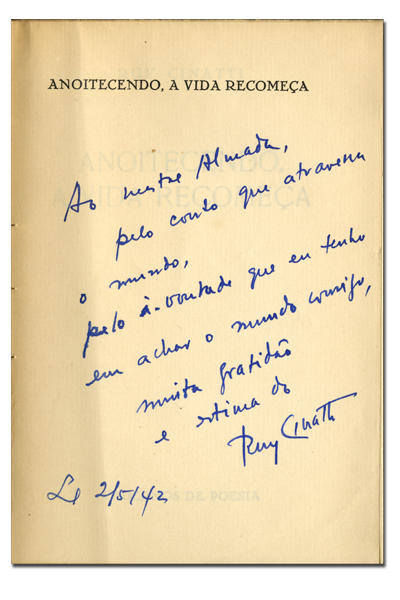 ANOITECENDO, A VIDA RECOMEÇA
Ao mestre Almada,
pelo que atravessa
o mundo,
pelo à-vontade que eu tenho
em achar o mundo comigo,
muita gratidão
e estima do
Ruy Cinatti
2/5/42